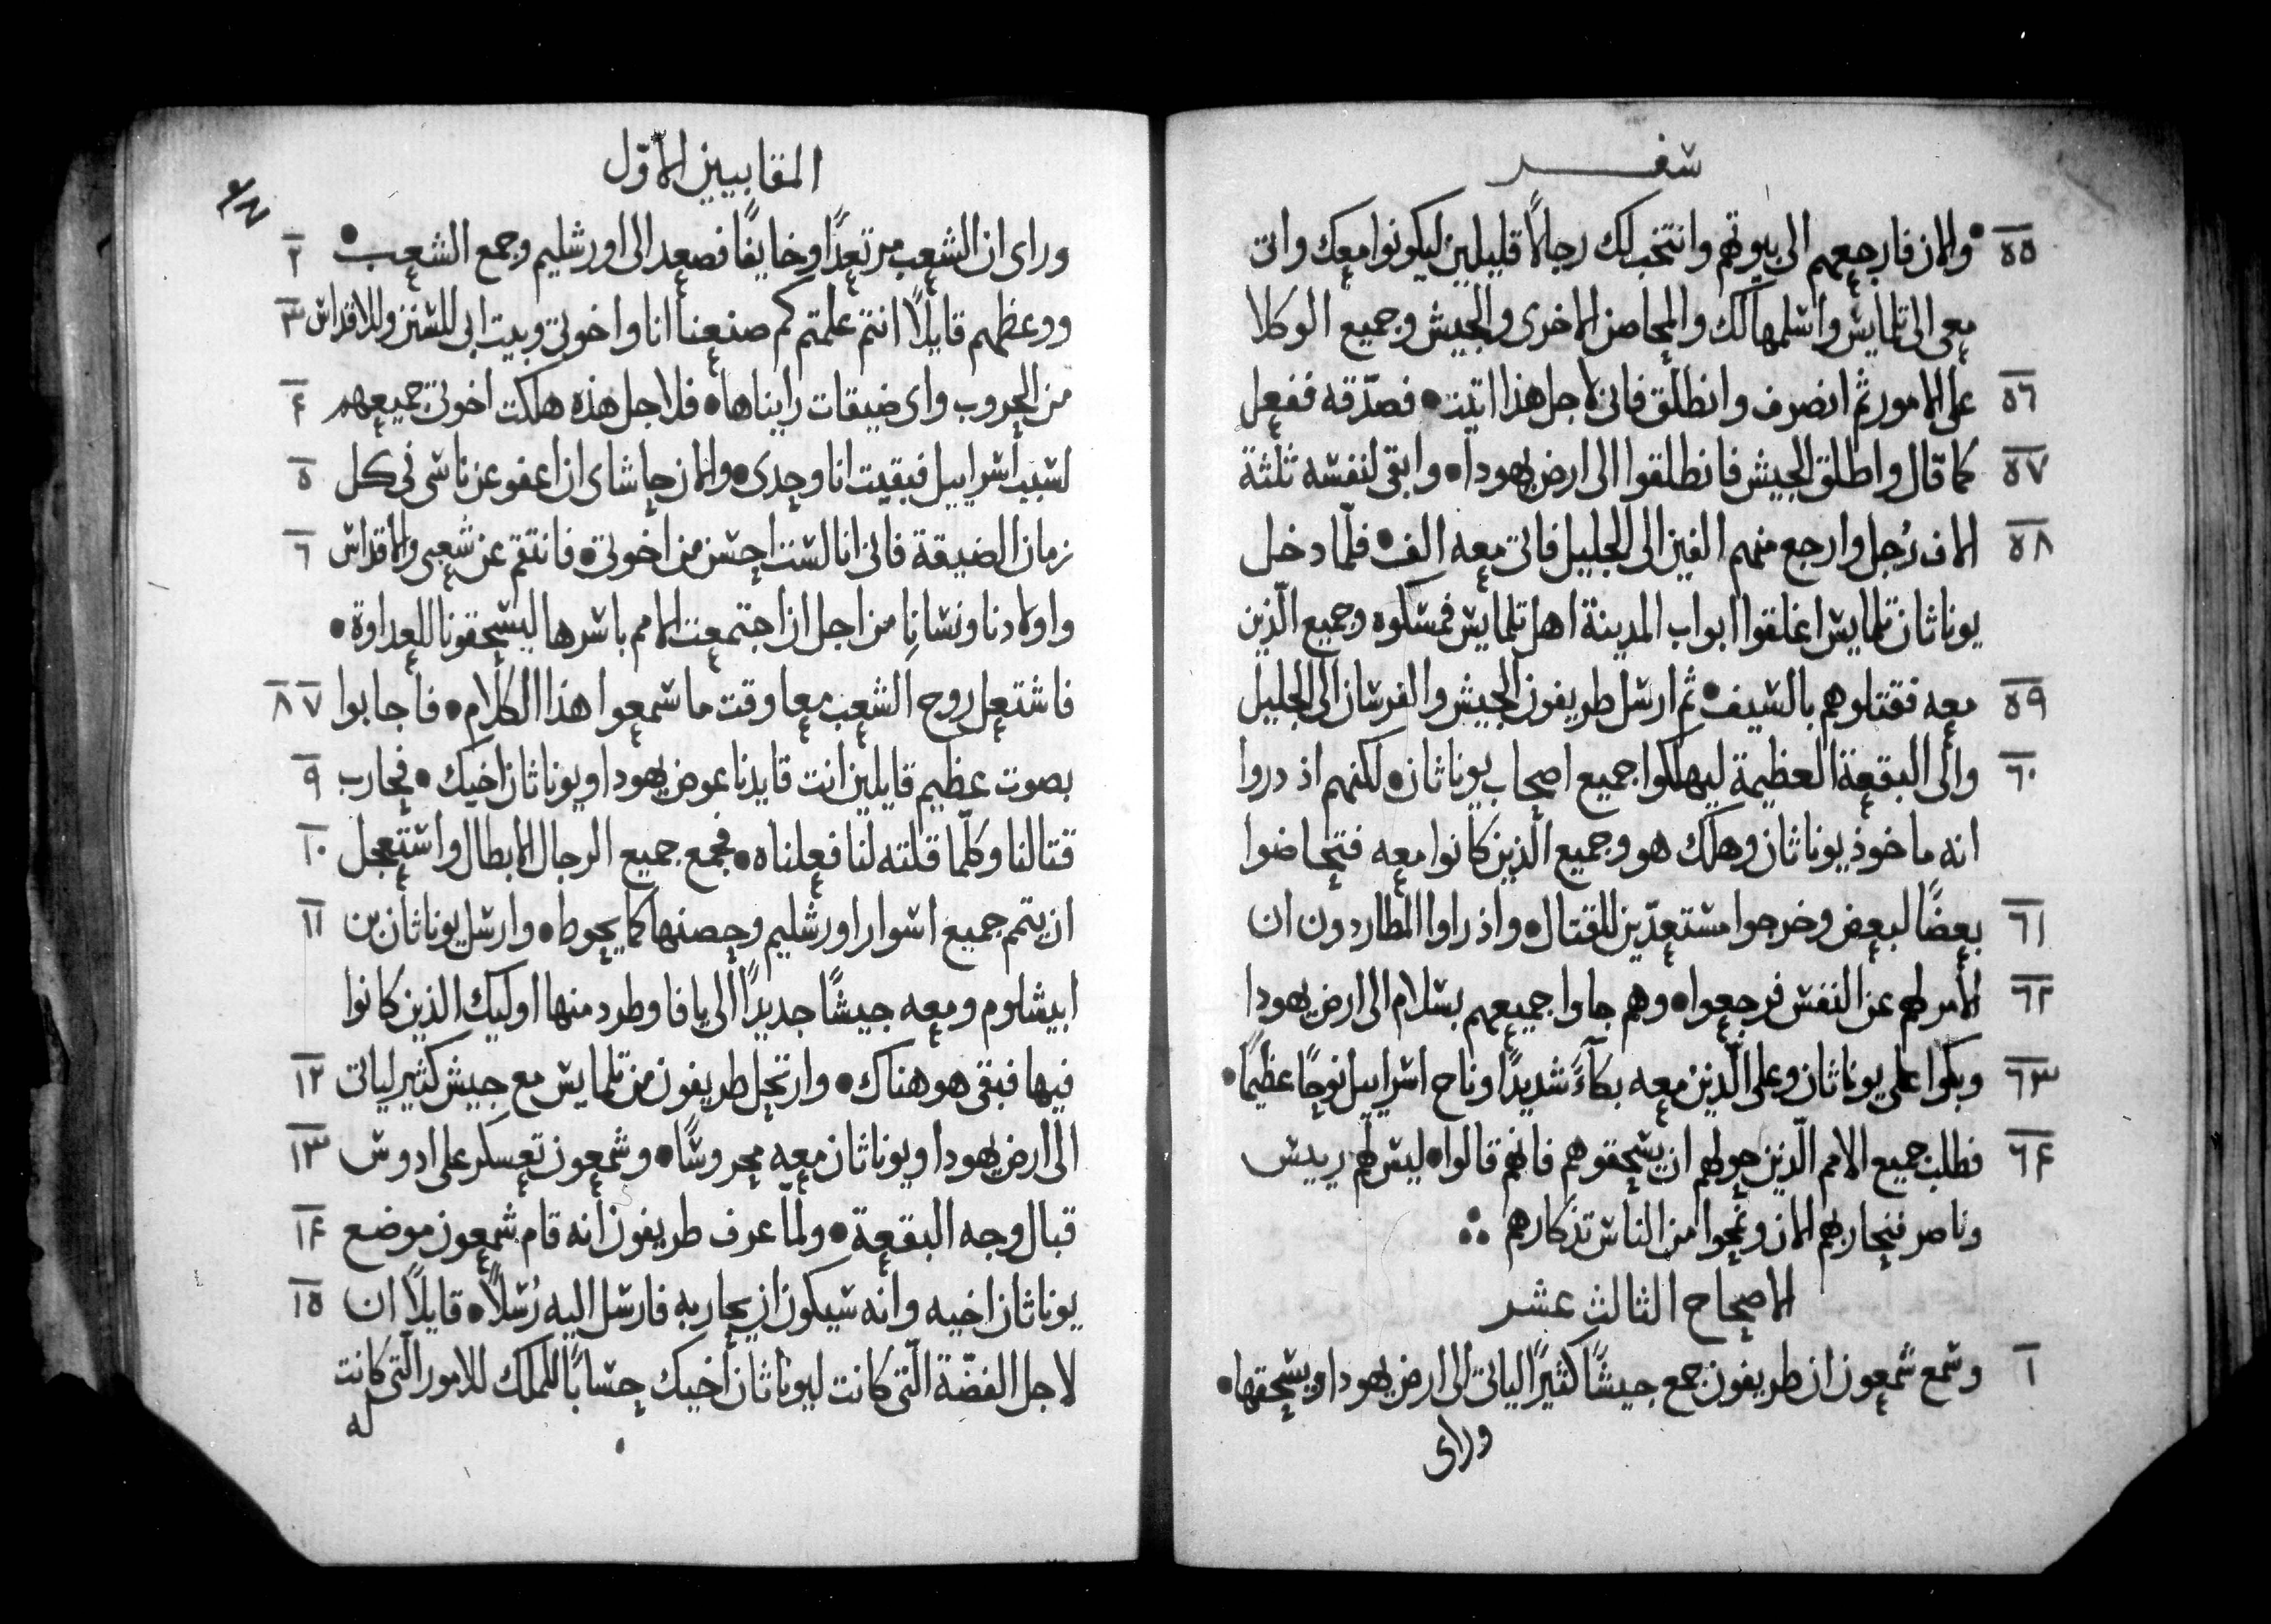 سفر
٥٥ والان فارجعهم الى بيوتهم وانتخب لك رجالًا قليلين ليكونوا معك واتى
معى الى تلمايس واسلمها لك والمحاصن الاخرى والجيش وجميع الوكلا
٥٦ على الامور ثم انصرف وانطلق فانى لاجل هذا اتيت • فصدّقه ففعل
٥٧ كما قال واطلق الجيش فانطلقوا الى ارض يهودا • وابقى لنفسه ثلثة
٥٨ الاف رُجل وارجع منهم الفين الى الجليل فاتى معه الف • فلمّا دخل
يوناثان تلمايس اغلقوا ابواب المدينة اهل تلمايس فمسكوه وجميع الّذين
٥٩ معه فقتلوهم بالسيف • ثم ارسل طريفون الجيش والفرسان الى الجليل
٦٠ والى البقعة العظيمة ليهلكوا جميع اصحاب يوناثان • لكنهم اذ دروا
انه ماخوذ يوناثان وهلك هو وجميع الّذين كانوا معه فتحاضوا
٦١ بعضًا لبعض وخرجوا مستعدّين للقتال • واذ راوا المطاردون ان
٦٢ الامر لهم عن النفس فرجعوا • وهم جاوا جميعهم بسلام الى ارض يهودا
٦٣ وبكوا على يوناثان وعلى الّذين معه بكآءً شديدًا وناح اسراييل نوحًا عظيمًا •
٦۴ فطلب جميع الامم الّذين حولهم ان يسحقوهم فانهم قالوا • ليس لهم رييس
وناصر فنحاربهم الان ونمحوا من الناس تذكارهم ∴
الاصحاح الثالث عشر
١ وسمع شمعون ان طريفون جمع جيشًا كثيرًا لياتى الى ارض يهودا ويسحقها •
وراى
المقابيين الاوّل
وراى ان الشعب مرتعدًا وخايفًا فصعد الى اورشليم وجمع الشعب • ٢
ووعظهم قايلًا انتم علمتم كم صنعنا انا واخوتى وبيت ابى للسنن وللاقداس ٣
من الحروب واى ضيقات رايناها • فلاجل هذه هلكت اخوتى جميعهم ۴
لسبب اسراييل فبقيت انا وحدى • والان حاشاى ان اعفو عن ناسى فى كل ٥
زمان الضيقة فانى انا لست احسن من اخوتى • فانتقم عن شعبى والاقداس ٦
واولادنا ونسانا من اجل ان اجتمعت الامم باسرها ليسحقونا للعداوة •
فاشتعل روح الشعب معا وقت ما سمعوا هذا الكلام • فاجابوا ٧ ٨
بصوت عظيم قايلين انت قايدنا عوض يهودا ويوناثان اخيك • فحارب ٩
قتالنا وكلّما قلته لنا فعلناه • فجمع جميع الرجال الابطال واستعجل ١٠
ان يتمم جميع اسوار اورشليم وحصنها كما يحوط • وارسل يوناثان بن ١١
ابيشلوم ومعه جيشًا جديدًا الى يافا وطرد منها اوليك الذين كانوا
فيها فبقى هو هناك • وارتحل طريفون من تلمايس مع جيش كثير لياتى ١٢
الى ارض يهودا ويوناثان معه محروسًا • وشمعون تعسكر على ادوس ١٣
قبال وجه البقعة • ولمّا عرف طريفون انه قام شمعون موضع ١۴
يوناثان اخيه وانه سيكون ان يحاربه فارسل اليه رُسلًا • قايلًا ان ١٥
لاجل الفضّة الّتى كانت ليوناثان اخيك حسابًا للملك للامور الّتى كانت
له